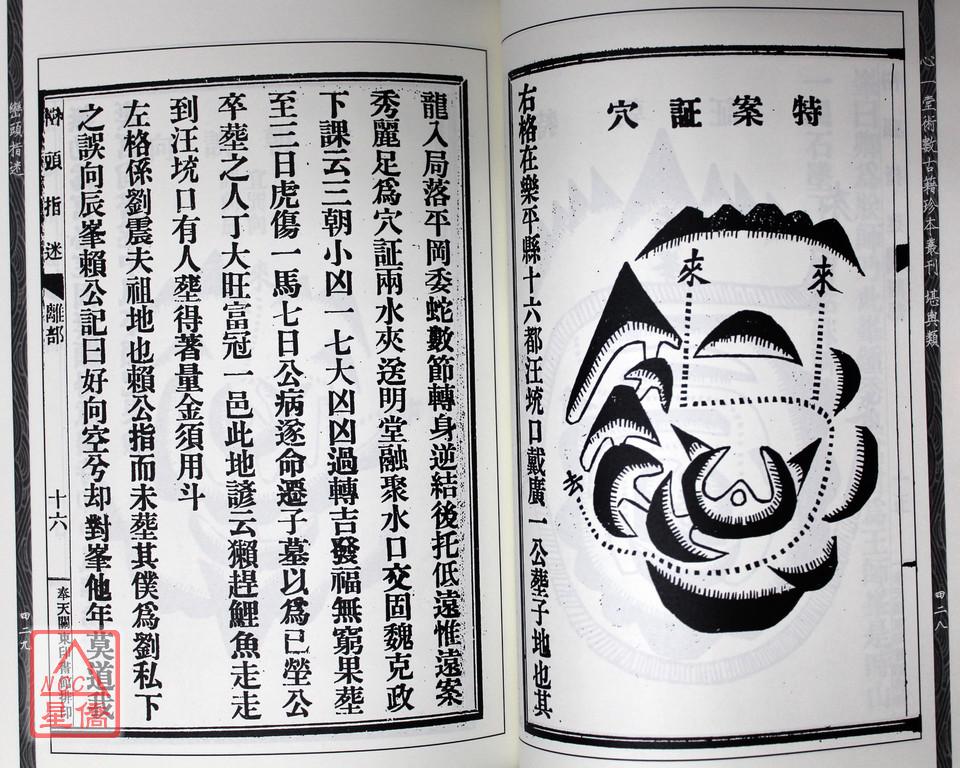 心一堂術數古籍珍本叢刊 堪輿類
四二八
特案証穴
來
來
去
右格在樂平縣十六都汪坑口戴廣一公塟子地也其
龍入局落平岡委蛇數節轉身逆結後托低遠惟遠案
秀麗足爲穴証兩水夾送明堂融聚水口交固魏克政
下課云三朝小凶一七大凶凶過轉吉發福無窮果塟
至三日虎傷一馬七日公病遂命遷子墓以爲已塋公
卒塟之人丁大旺富冠一邑此地諺云獺趕鯉魚走走
到汪坑口有人塟得著量金須用斗
左格係劉震夫祖地也賴公指而未塟其僕爲劉私下
之誤向辰峯賴公記曰好向空兮却對峯他年莫道我
頭指迷
離部
十六
奉天關東印書館排印
巒頭指迷
四二九
NCC
星僑